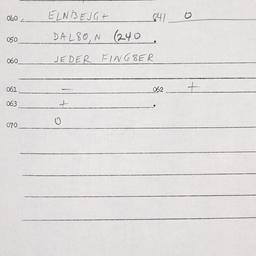 040. ELNBEJG+ 841 0
050 DALBO,N (240.
060 JEDER FINGBER
061 — 062 +
063 +
070 0